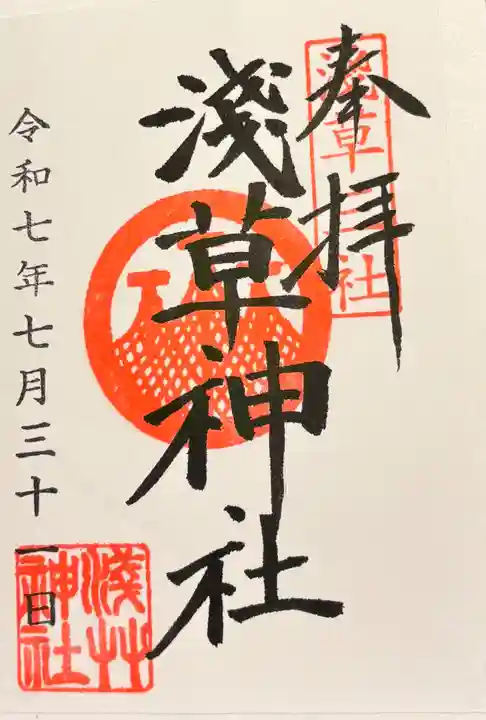 奉拝
淺草三社
淺草神社
令和七年七月三十一日
淺草神社